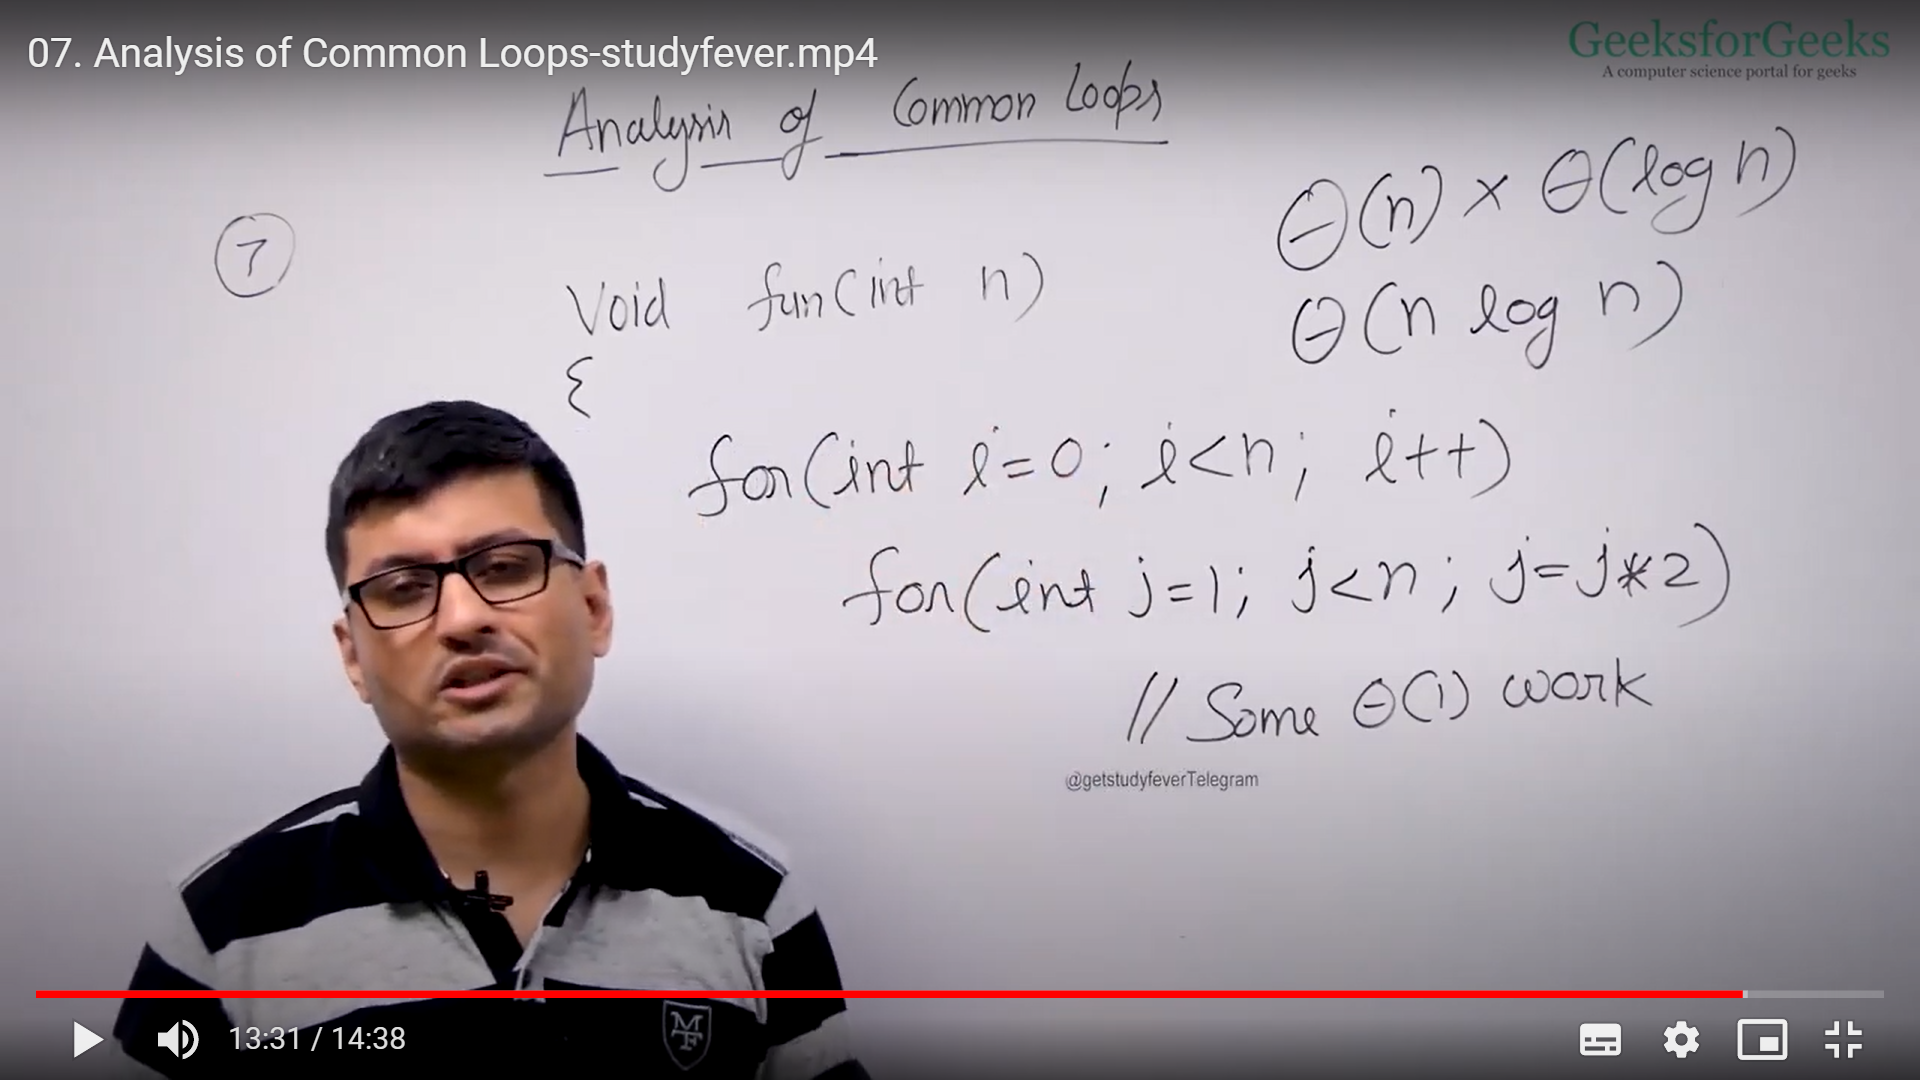 07. Analysis of Common Loops-studyfever.mp4
GeeksforGeeks
A computer science portal for geeks
Analysis of Common Loops
7
Θ(n) × Θ(log n)
Θ(n log n)
Void fun(int n)
{
for(int i=0; i<n; i++)
for(int j=1; j<n; j=j*2)
// Some Θ(1) work
@getstudyfeverTelegram
MF
13:31 / 14:38